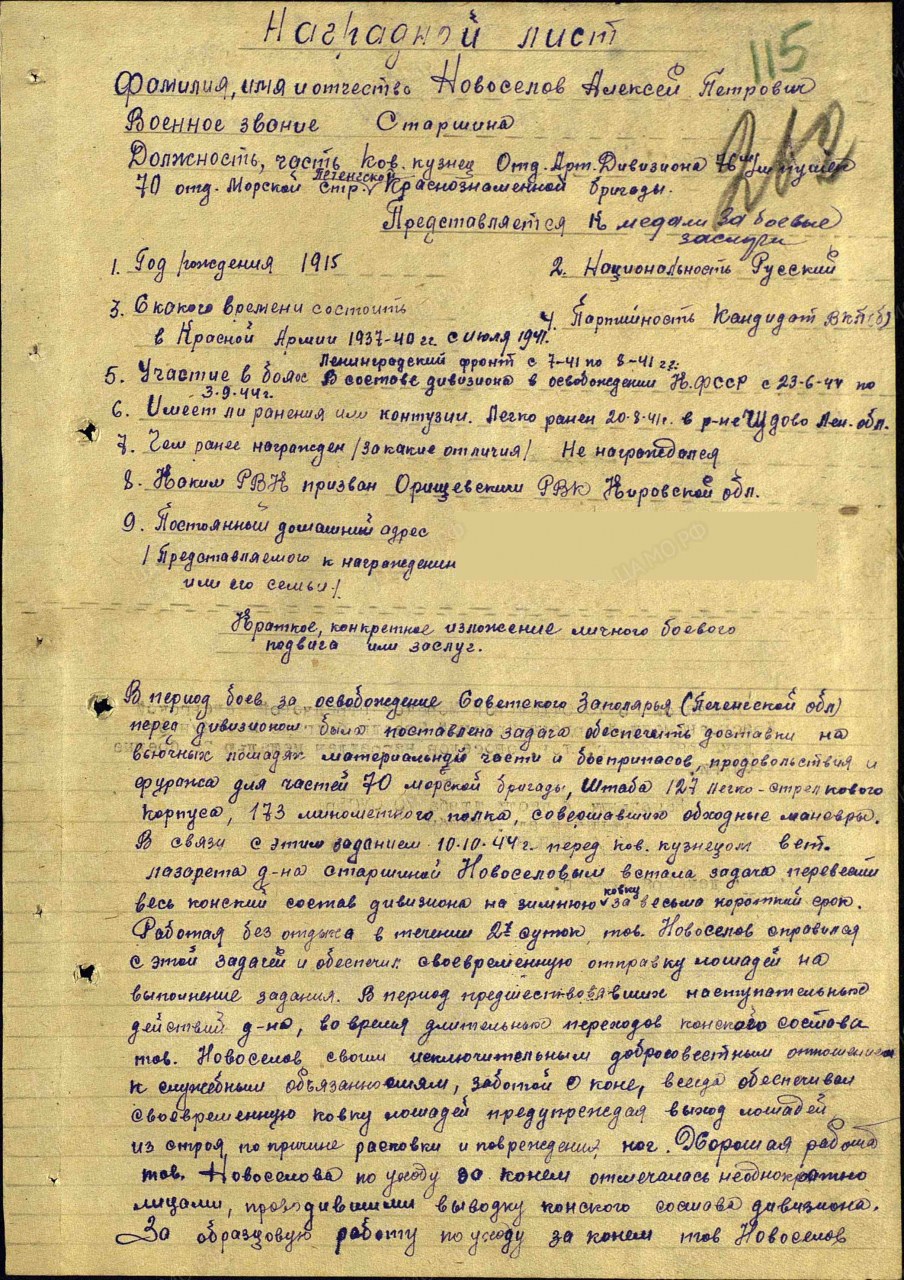 Наградной лист
115
263
Фамилия, имя и отчество Новоселов Алексей Петрович
Военное звание Старшина
Должность, часть Ков. кузнец Отд. Арт. Дивизиона 76 мм пушек
70 отд. Морской Стр. Печенгской Краснознаменной бригады.
Представляется к медали За боевые
заслуги
1. Год рождения 1915
2. Национальность Русский
3. С какого времени состоит
в Красной Армии 1937-40 гг. с июля 1941.
4. Партийность Кандидат ВКП(б)
Ленинградский фронт с 7-41 по 8-41 гг.
5. Участие в боях В составе дивизиона в освобождении К.ФССР с 23-6-44 по
3.9.44г.
6. Имеет ли ранения или контузии. Легко ранен 20-8-41г. в р-не Чудово Лен. обл.
7. Чем ранее награжден /за какие отличия/ Не награждался
8. Каким РВК призван Оричевским РВК Кировской обл.
9. Постоянный домашний адрес
/Представляемого к награждению
или его семьи/.
Краткое, конкретное изложение личного боевого
подвига или заслуг.
В период боев за освобождение Советского Заполярья (Печенгской обл)
перед дивизионом была поставлена задача обеспечить доставки на
вьючных лошадях материальной части и боеприпасов, продовольствия и
фуража для частей 70 морской бригады, Штаба 127 легко-стрелкового
корпуса, 173 минометного полка, совершавших обходные маневры.
В связи с этим заданием 10.10.44г. перед ков. кузнецом вет.
лазарета д-на старшиной Новоселовым встала задача перевести
весь конский состав дивизиона на зимнюю ковку за весьма короткий срок.
Работая без отдыха в течении 2х суток, тов. Новоселов справился
с этой задачей и обеспечил своевременную отправку лошадей на
выполнение задания. В период предшествовавших наступательных
действий д-на, во время длительных переходов конского состава
тов. Новоселов своим исключительным добросовестным отношением
к служебным обязанностям, заботой о коне, всегда обеспечивал
своевременную ковку лошадей предупреждая выход лошадей
из строя, по причине расковки и повреждения ног. Хорошая работа
тов. Новоселова по уходу за конем отмечалась неоднократно
лицами, проводившими выводку конского состава дивизиона.
За образцовую работу по уходу за конем тов Новоселов